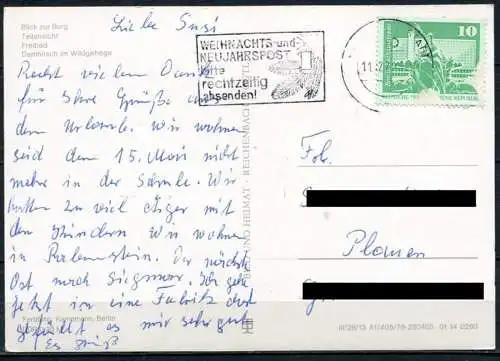 Blick zur Burg
Teilansicht
Freibad
Damhirsch im Wildgehege
Liebe Susi
Recht vielen Dank
für Ihre Grüße
dem Urlaub. Wir wohnen
seit dem 15. Mai nicht
mehr in der Schule. Wir
hatten zu viel Ärger mit
den Kindern Wir wohnen
in Rabenstein. Der nächste
Ort nach Siegmar. Ich gehe
jetzt in eine Fabrik dort
gefällt es mir sehr gut
Es grüßt
WEIHNACHTS- und
NEUJAHRSPOST
bitte
rechtzeitig
absenden!
10
BILD UND HEIMAT · REICHENBACH
Frl.
S
Plauen
Berlin
A1/405/76
01 14 0260